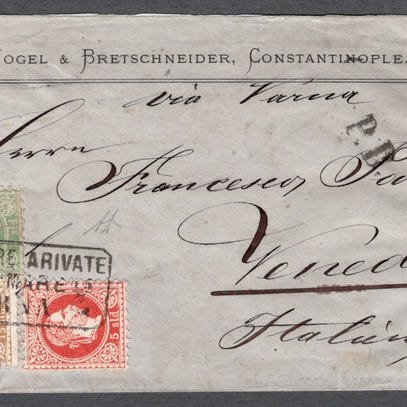 VOGEL & BRETSCHNEIDER, CONSTANTINOPLE.
via Varna
P.D.
Herrn
Francesco
Vened
Italien
ARIVATE
MARE
5 sld